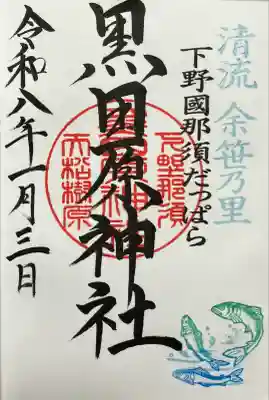 清流 余笹乃里
下野國那須だっぱら
黒田原神社
令和八年一月三日